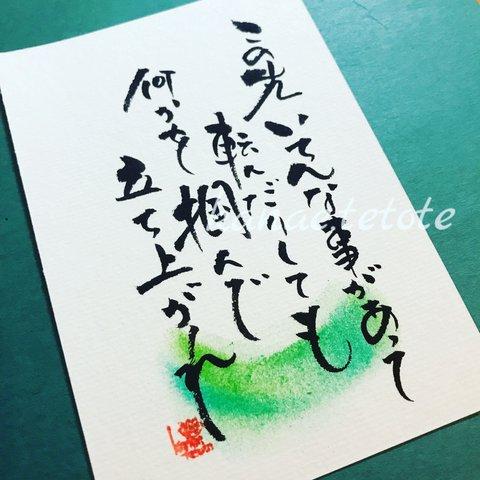 この先いろんな事があって
転んだりしても
何かを掴んで
立ち上がれ
tetote